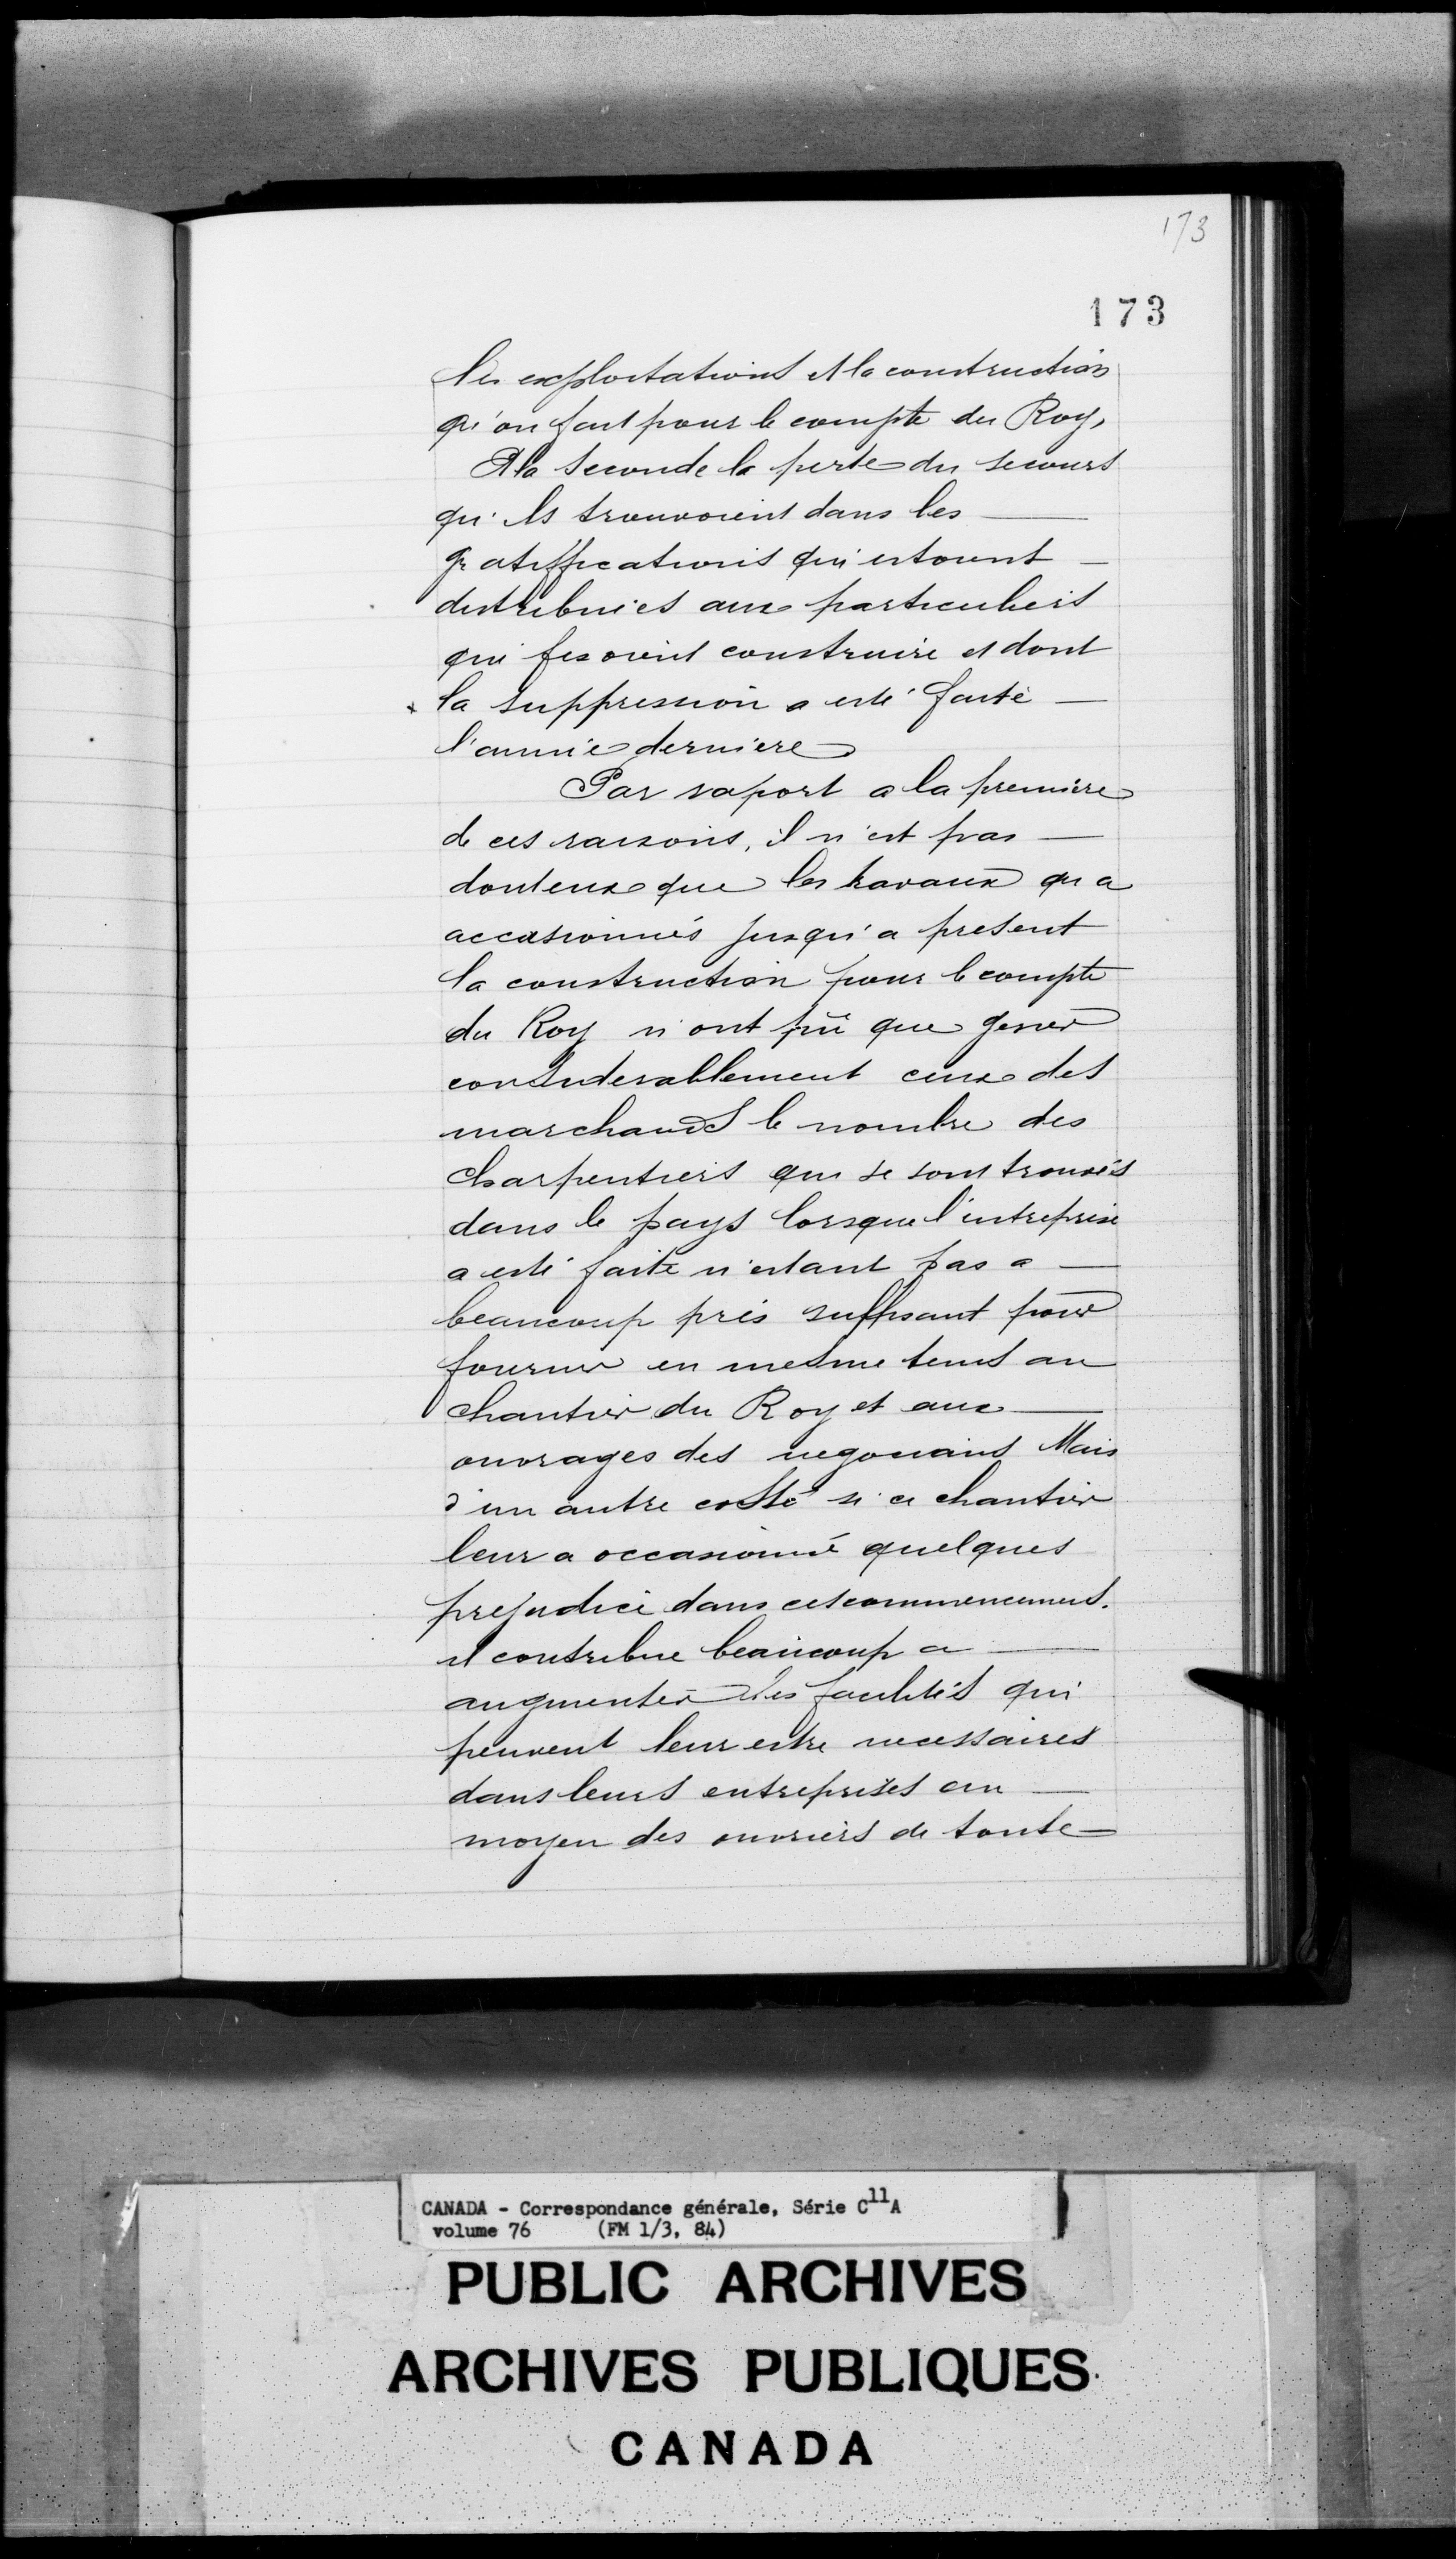 173
173
les exploitations et la construction
qu'on fait pour le compte du Roy,
Et la seconde la perte du secours
qu'ils trouvoient dans les
gratiffications qui estoient
distribuées aux particuliers
qui fesoient construire et dont
la suppression a esté faite
l'année derniere
Par raport a la premiere
de ces raisons, il n'est pas
douteux que les travaux qu a
occasionnés jusqu'a present
la construction pour le compte
du Roy n'ont pû que gesner
considerablement ceux des
marchands le nombre des
charpentiers qui se sont trouvés
dans le pays lorsque l'entreprise
a esté faite n'estant pas a
beaucoup prés suffisant pour
fournir en mesme tems au
chantier du Roy et aux
ouvrages des negocians Mais
d'un autre costé si ce chantier
leur a occasionné quelques
prejudice dans ces commencemens.
il contribue beaucoup a
augmenter les facilités qui
peuvent leur estre necessaires
dans leurs entreprises au
moyen des ouvriers de toute
CANADA - Correspondance générale, Série C11A
volume 76 (FM 1/3, 84)
PUBLIC ARCHIVES
ARCHIVES PUBLIQUES
CANADA